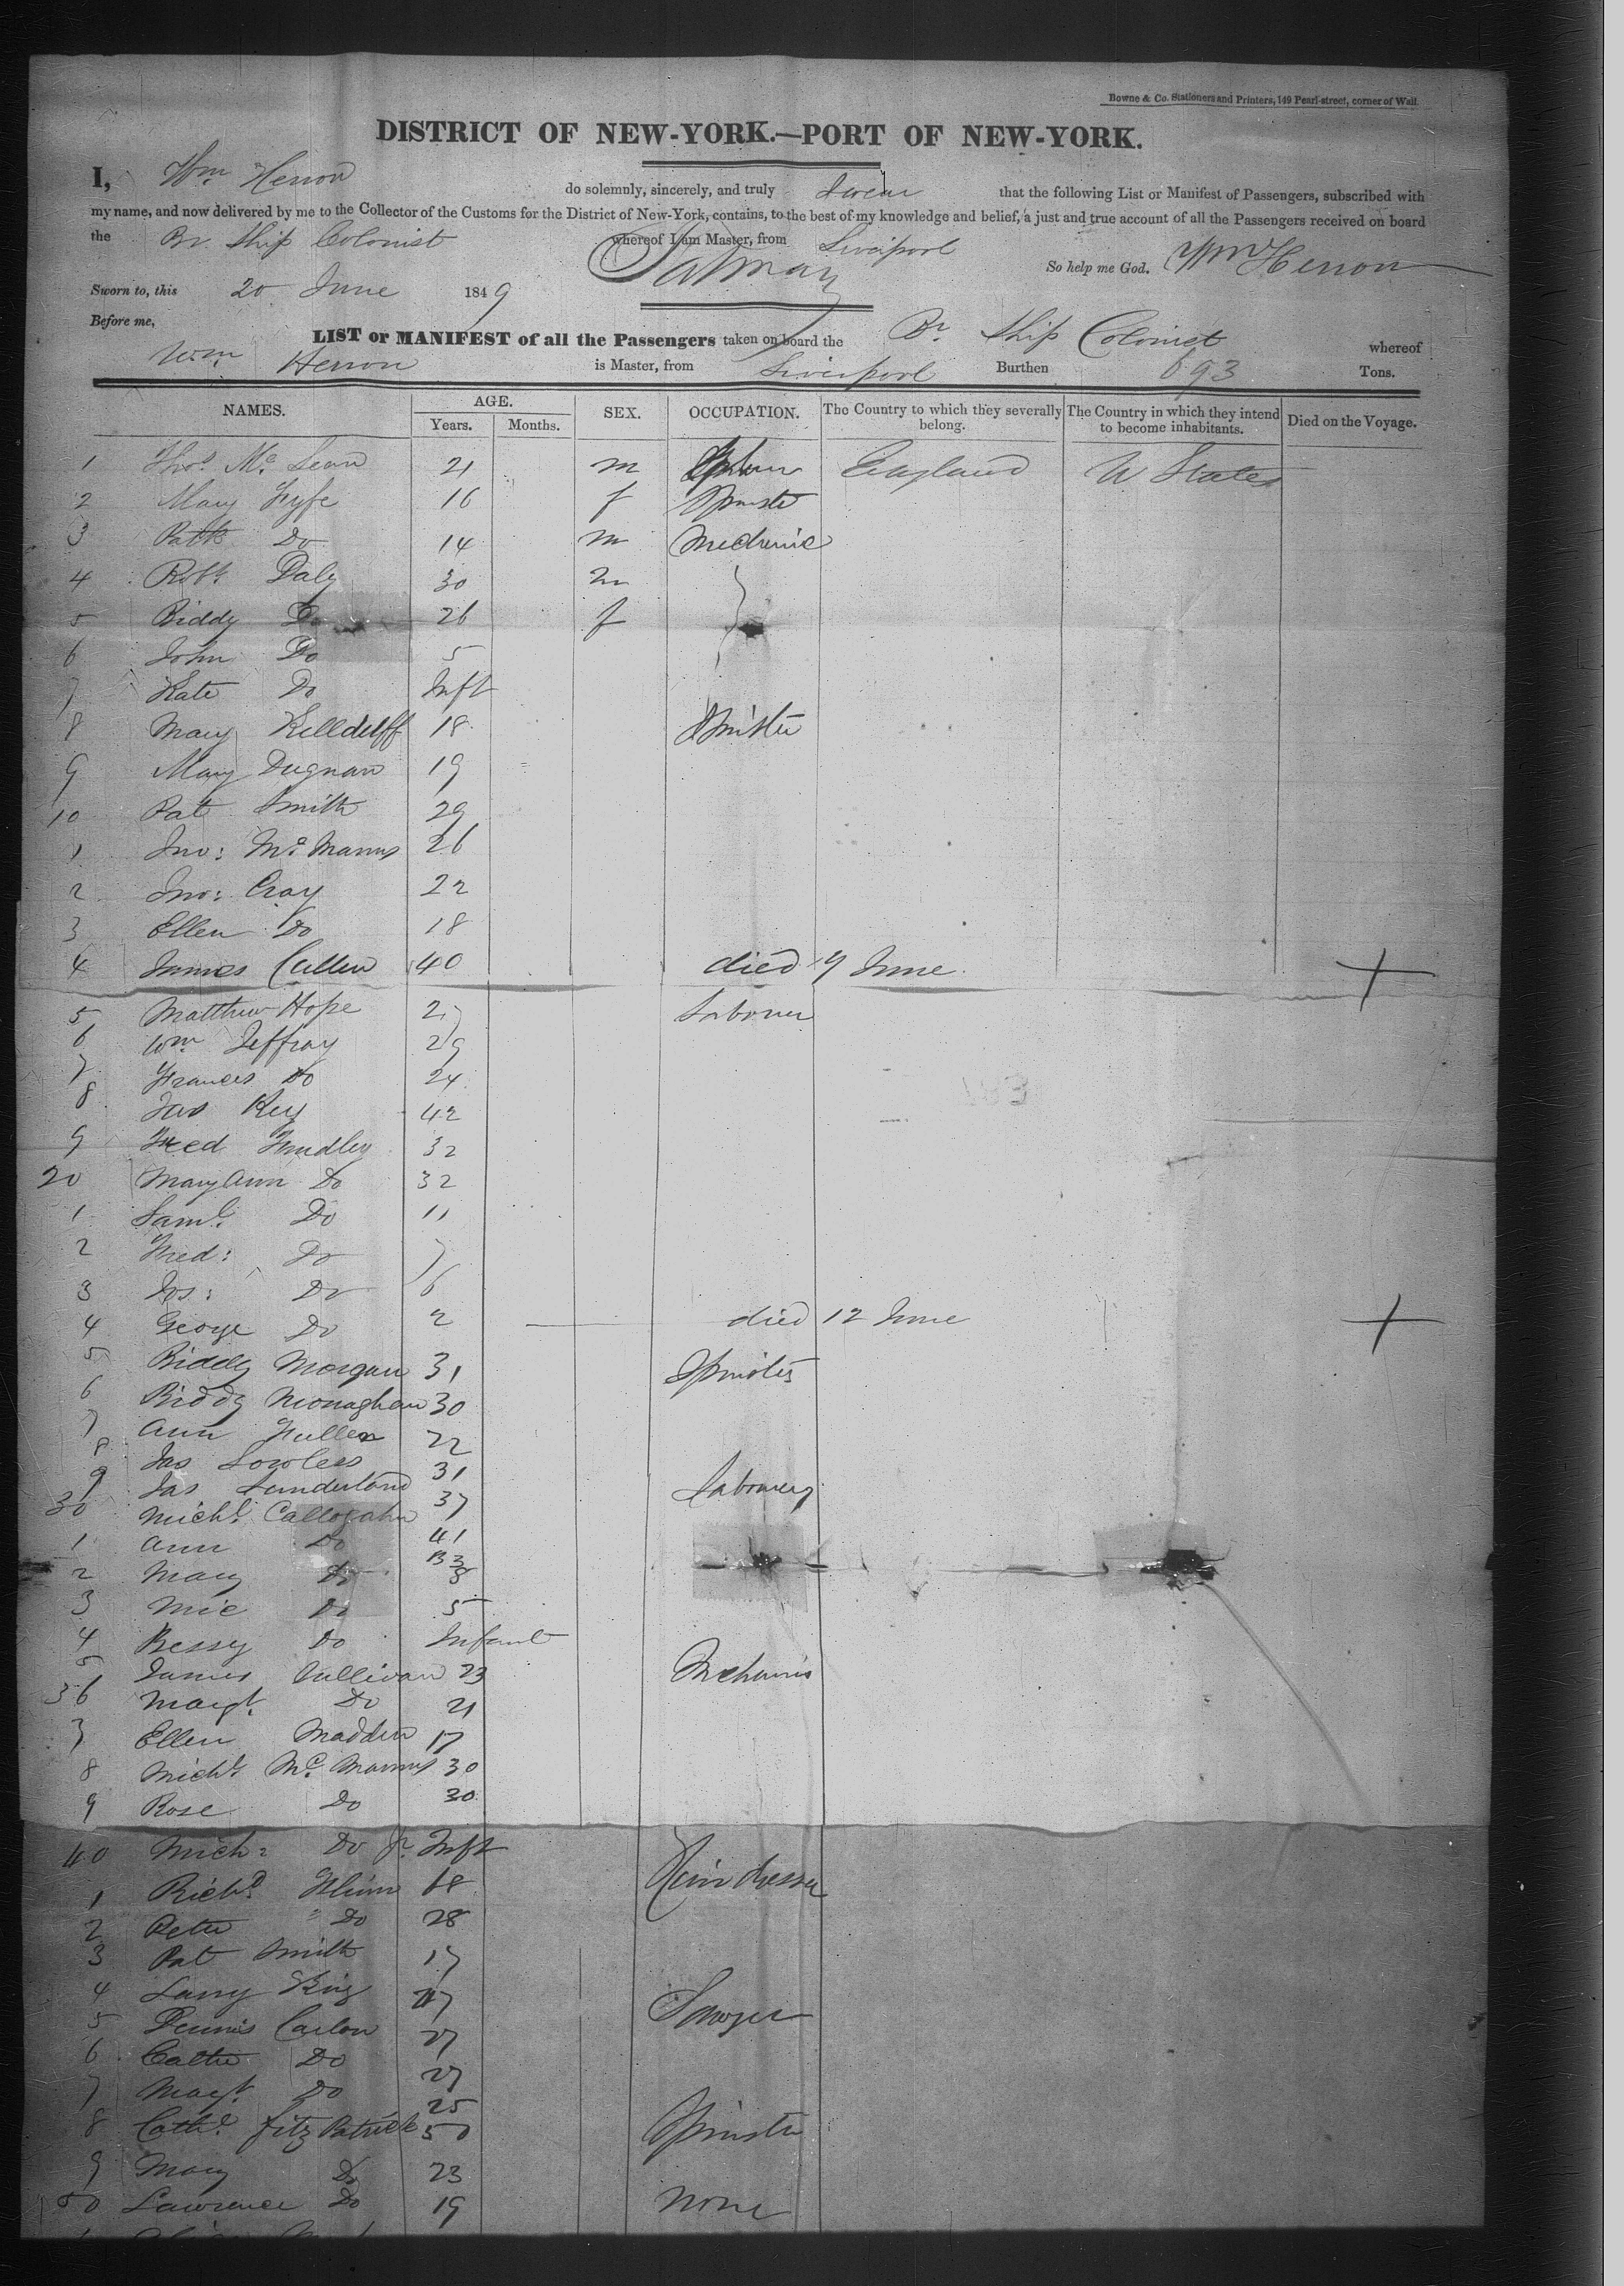 Bowne & Co. Stationers and Printers, 149 Pearl-street, corner of Wall.
DISTRICT OF NEW-YORK.—PORT OF NEW-YORK.
I, Wm Herron do solemnly, sincerely, and truly swear that the following List or Manifest of Passengers, subscribed with
my name, and now delivered by me to the Collector of the Customs for the District of New-York, contains, to the best of my knowledge and belief, a just and true account of all the Passengers received on board
the Br. Ship Colonist whereof I am Master, from Liverpool
So help me God. Wm Herron
Sworn to, this 20 June 1849
Before me,
LIST or MANIFEST of all the Passengers taken on board the Br. Ship Colonist whereof
Wm Herron is Master, from Liverpool Burthen 693 Tons.
NAMES. AGE. Years. Months. SEX. OCCUPATION. The Country to which they severally belong. The Country in which they intend to become inhabitants. Died on the Voyage.
1 Thos. Mc. 21 m England U States
2 Mary Fyfe 16 f Spinster
3 Patk Do 14 m Mechanic
4 Robt Daly 30 m
5 Biddy Do 26 f
6 John Do 5
7 Kate Do Inft
8 Mary Killduff 18 Spinster
9 Mary Dugnan 19
10 Pat Smith 29
1 Jno: Mc. Manus 26
2 Jno: Cray 22
3 Ellen Do 18
4 James Cullen 40 died 9 June +
5 Matthew Hope 27 Labourer
6 Wm Jeffray 29
7 Frances Do 24
8 Jas Key 42
9 Fred 32
20 Mary Ann Do 32
1 Saml. Do 11
2 Fred: Do 7
3 Jos: Do 6
4 George Do 2 died 12 June +
5 Biddy Morgan 31 Spinster
6 Biddy Monaghan 30
7 Ann Fullen 22
8 Jas Lowless 31
9 Jas Sunderland 37 Labourers
30 Michl. Callogahn 41
1 Ann Do 33
2 Mary Do 8
3 Mic Do 5
4 Bessy Do Infant
5 James Sullivan 23 Mechanic
36 Margt. Do 21
7 Ellen Madden 17
8 Michl. Mc. Manus 30
9 Rose Do 30
40 Mich: Do Jr Inft
1 Richd. Flinn 68
2 Peter Do 28
3 Pat Smith 17
4 Larry King 47 Sawyer
5 Dennis Carlon 27
6 Cathe Do 27
7 Margt. Do 25
8 Cathe. Fitz Patrick 50 Spinster
9 Mary Do 23
50 Lawrence Do 19 None